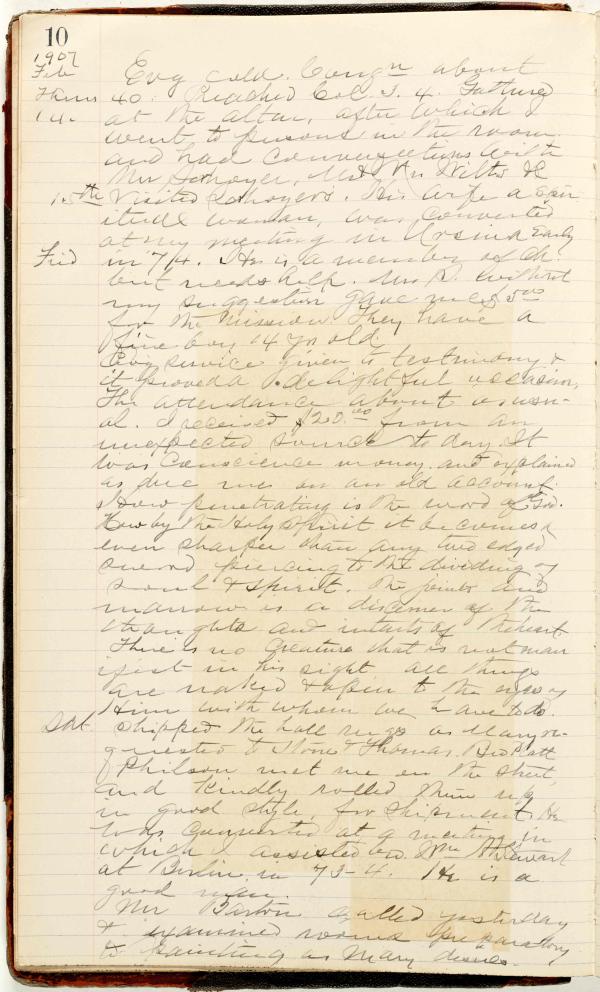 10
1907
Feb Evg cold. Congn about
Thurs 40. Preached Col. 3. 4. Gathered
14. at the altar, after which I
went to persons in the room
and had conversations with
Mr Schoyer, Mr & Mrs &c
15th Visited Schoyers. His wife a
woman, was converted
at my meeting in Ursina Early
Frid in 74. He is a member of Ch.
but needs help. Mrs S. without
my suggestion gave me $5.00
for the Mission. They have a
fine boy 14 yr old.
Evg service given to testimony &
it proved a delightful occasion,
The attendance about as usu-
al. I received $20.00 from an
unexpected source to day. It
was Conscience money. and explained
as due me on an old account.
How penetrating is the word of God.
How by the Holy Spirit it becomes
even sharper than any two edged
sword piercing to the dividing of
soul & spirit. the joints and
marrow is a discerner of the
thoughts and intents of the heart
There is no Creature that is not man
ifest in his sight all things
are naked & open to the eyes of
Him with whom we have to do.
Sat. Shipped the hall rugs as Mary re-
quested to Stone & Thomas. Bro
Philson met me on the street,
and kindly rolled them up
in good style, for shipment. He
was converted at a meeting in
which I assisted bro. Wm Stewart
at Berlin, in 73-4. He is a
good man.
Mr Barton called yesterday
& examined rooms preparatory
to painting as Mary desires.